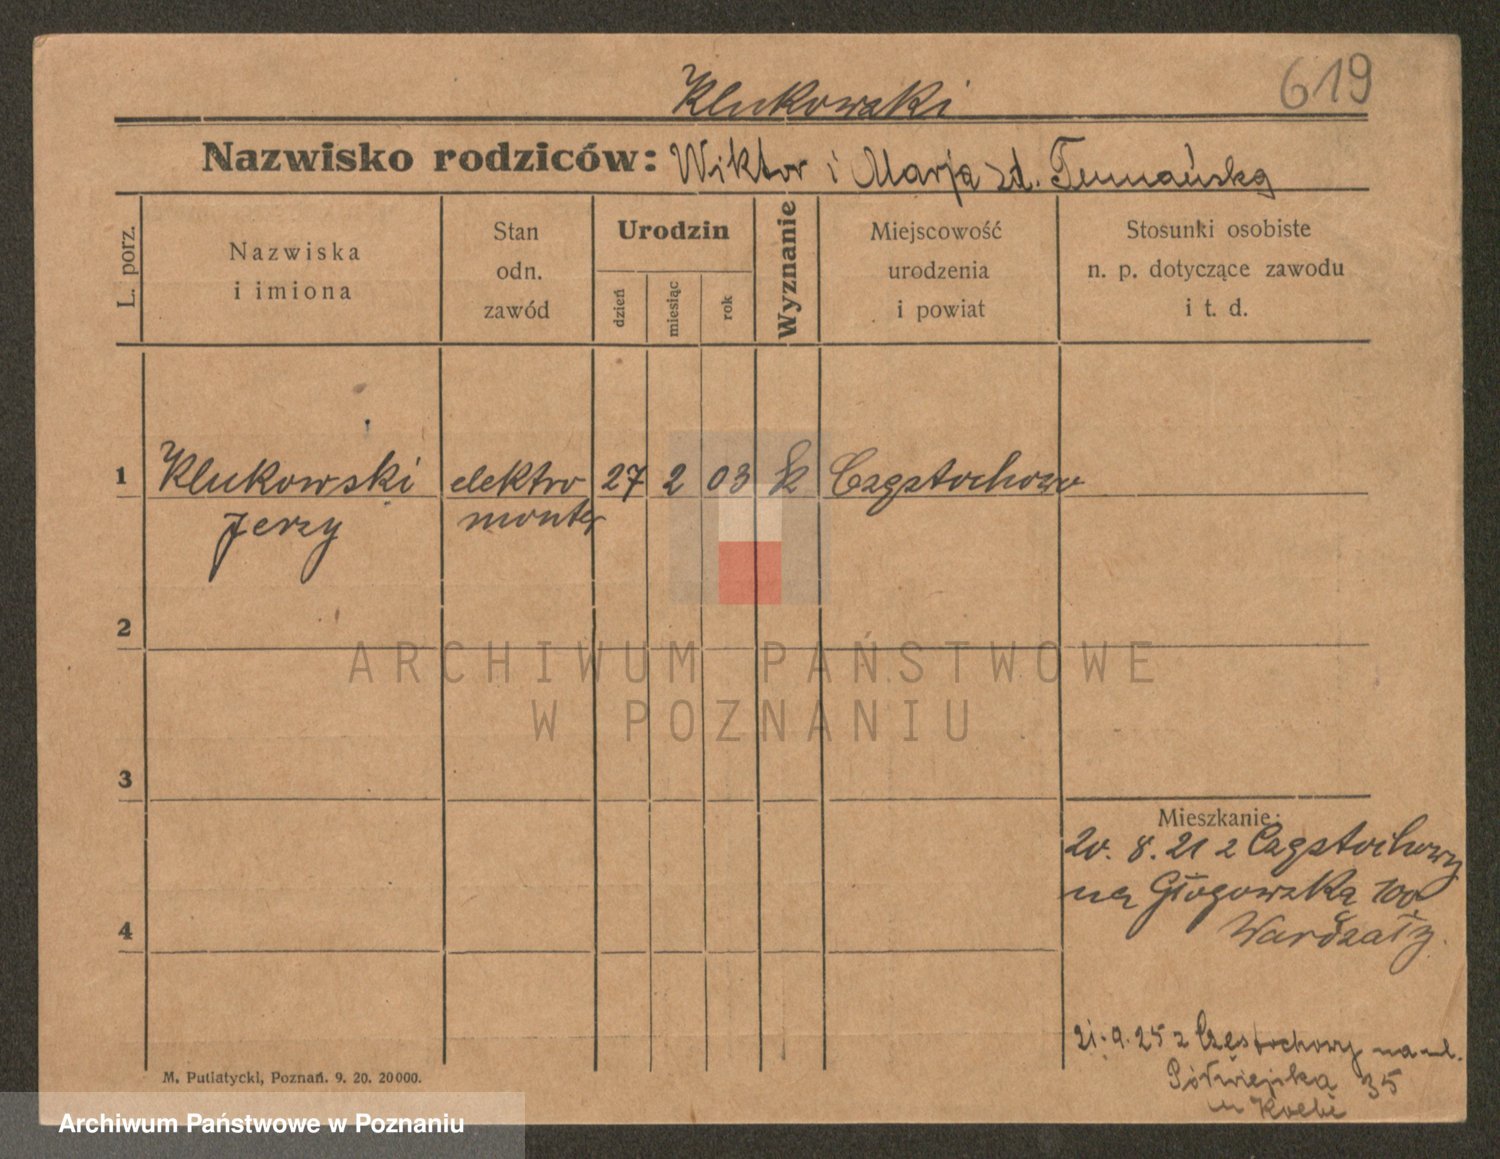 619
Klukowski
Nazwisko rodziców: Wiktor i Marja zd.
L. porz.
Nazwiska
i imiona
Stan
odn.
zawód
Urodzin
dzień
miesiąc
rok
Wyznanie
Miejscowość
urodzenia
i powiat
Stosunki osobiste
n. p. dotyczące zawodu
i t. d.
1 Klukowski elektro 27 2 03 k Częstochowa
Jerzy monter
2
ARCHIWUM PAŃSTWOWE
W POZNANIU
3
Mieszkanie:
20. 8. 21 z Częstochowy
na Głogowską 100
4
21. 9. 25 z Częstochowy na ul.
Półwiejską 35
M. Putiatycki, Poznań. 9. 20. 20000.
Archiwum Państwowe w Poznaniu